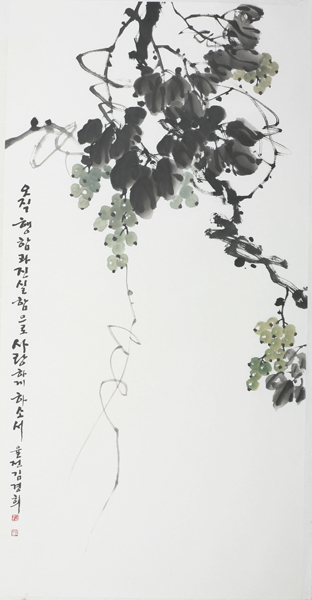 오직 행함과 진실함으로 사랑하게 하소서 윤전 김경희